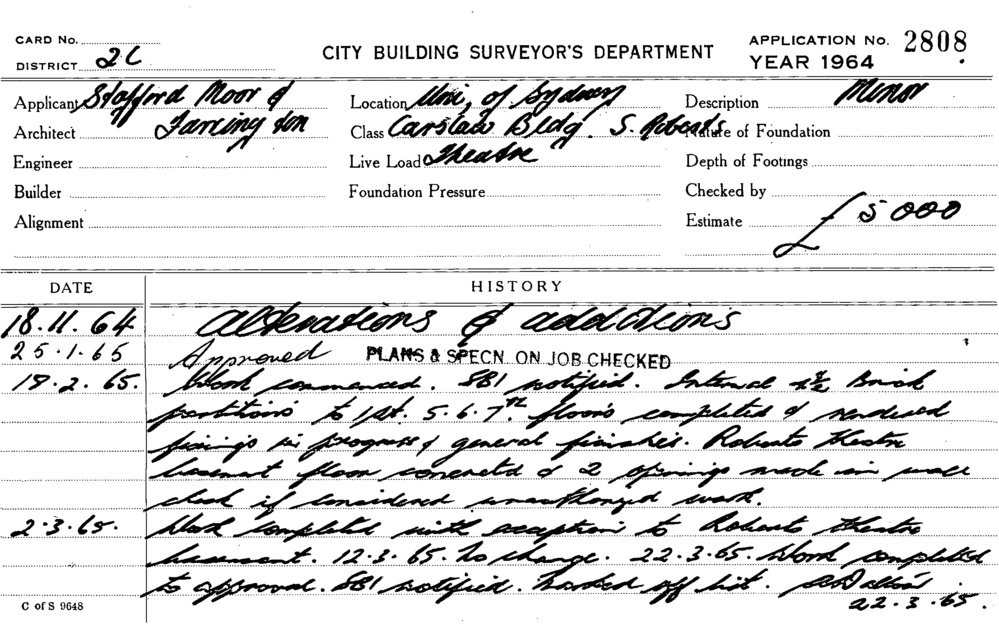 CARD No.
DISTRICT 2C
CITY BUILDING SURVEYOR'S DEPARTMENT
APPLICATION No. 2808
YEAR 1964
Applicant Stafford Moor &
Architect Farrington
Engineer
Builder
Alignment
Location Uni, of Sydney
Class Carslaw Bldg. S. Roberts
Live Load Theatre
Foundation Pressure
Description Minor
Nature of Foundation
Depth of Footings
Checked by
Estimate £5000
DATE HISTORY
18.11.64 Alterations & additions
25.1.65 Approved PLANS & SPECN. ON JOB CHECKED
19.2.65. Work commenced. SBI notified. Internal 4½ Brick
partitions to 1st. 5.6.7th. floors completed & rendered
fixings in progress & general finishes. Roberts theatre
basement floor concreted & 2 openings made in wall
check if considered unauthorized work.
2.3.65. Work completed with exception to Roberts theatre
basement. 12.3.65. No change. 22.3.65. Work completed
to approval. SBI notified. Marked off list.
22.3.65.
C of S 9648